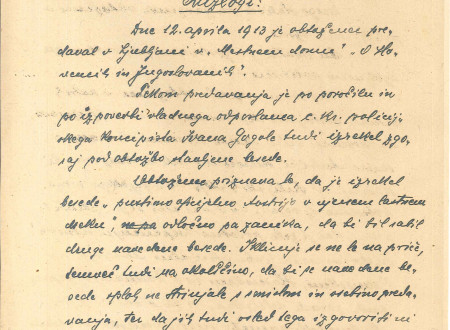 Razlogi:
Dne 12. aprila 1913 je obtoženec pre-
daval v Ljubljani v „Mestnem domu" „O Slo-
vencih in Jugoslovanih".
Tekom predavanja je po poročilu in
po izpovedbi vladnega odposlanca c. kr. policij-
skega koncipista Ivana Gogole tudi izrekel zgo-
raj pod obtožbo stavljene besede.
Obtoženec priznava to, da je izrekel
besede „pustimo oficijelno Avstrijo v njenem lastnem
odločno pa zanika, da bi bil rabil
druge navedene besede. Sklicuje se ne le na priče,
temveč tudi na okolščino, da bi se navedene be-
sede sploh ne strinjale s smislom in vsebino preda-
vanja, ter da jih tudi vsled tega izgovoriti ni